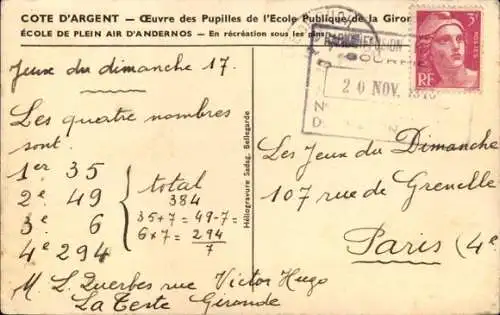 COTE D'ARGENT — Œuvre des Pupilles de l'Ecole Publique de la Giron
ÉCOLE DE PLEIN AIR D'ANDERNOS — En récréation sous les pins
Jeux du dimanche 17.
Les quatre nombres
sont
1er 35
2e 49
3e 6
4e 294
total
384
35+7 = 49-7 =
6×7 = 294/7
M L Querbes rue Victor Hugo
La Teste Gironde
Héliogravure Sadag, Bellegarde
3F
RF
20 NOV.
Les Jeux du Dimanche
107 rue de Grenelle
Paris (4e